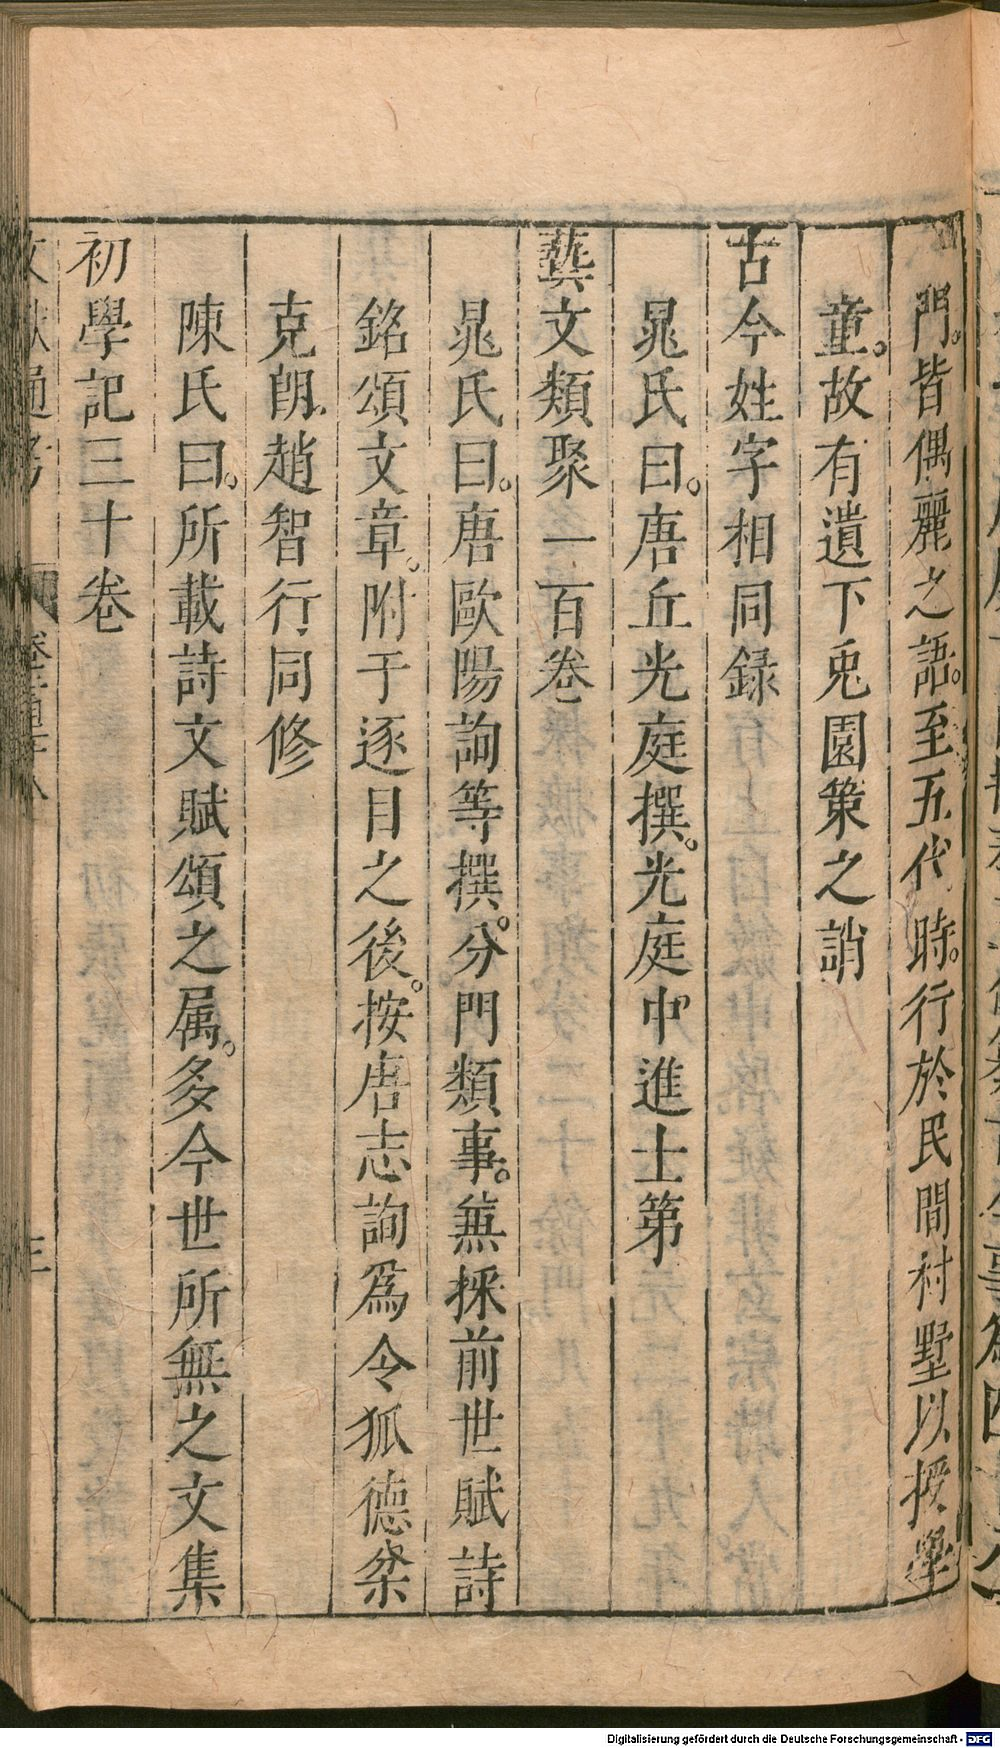 門。皆偶麗之語。至五代時。行於民間村墅以授學
童。故有遺下兎園策之誚
古今姓字相同録
晁氏曰。唐丘光庭撰。光庭中進士第
藝文類聚一百卷
晁氏曰。唐歐陽詢等撰。分門類事。兼採前世賦詩
銘頌文章。附于逐目之後。按唐志詢爲令狐德棻
克朗。趙智行同修
陳氏曰。所載詩文賦頌之属。多今世所無之文集
初學記三十卷
文獻通考
三
Digitalisierung gefördert durch die Deutsche Forschungsgemeinschaft - DFG